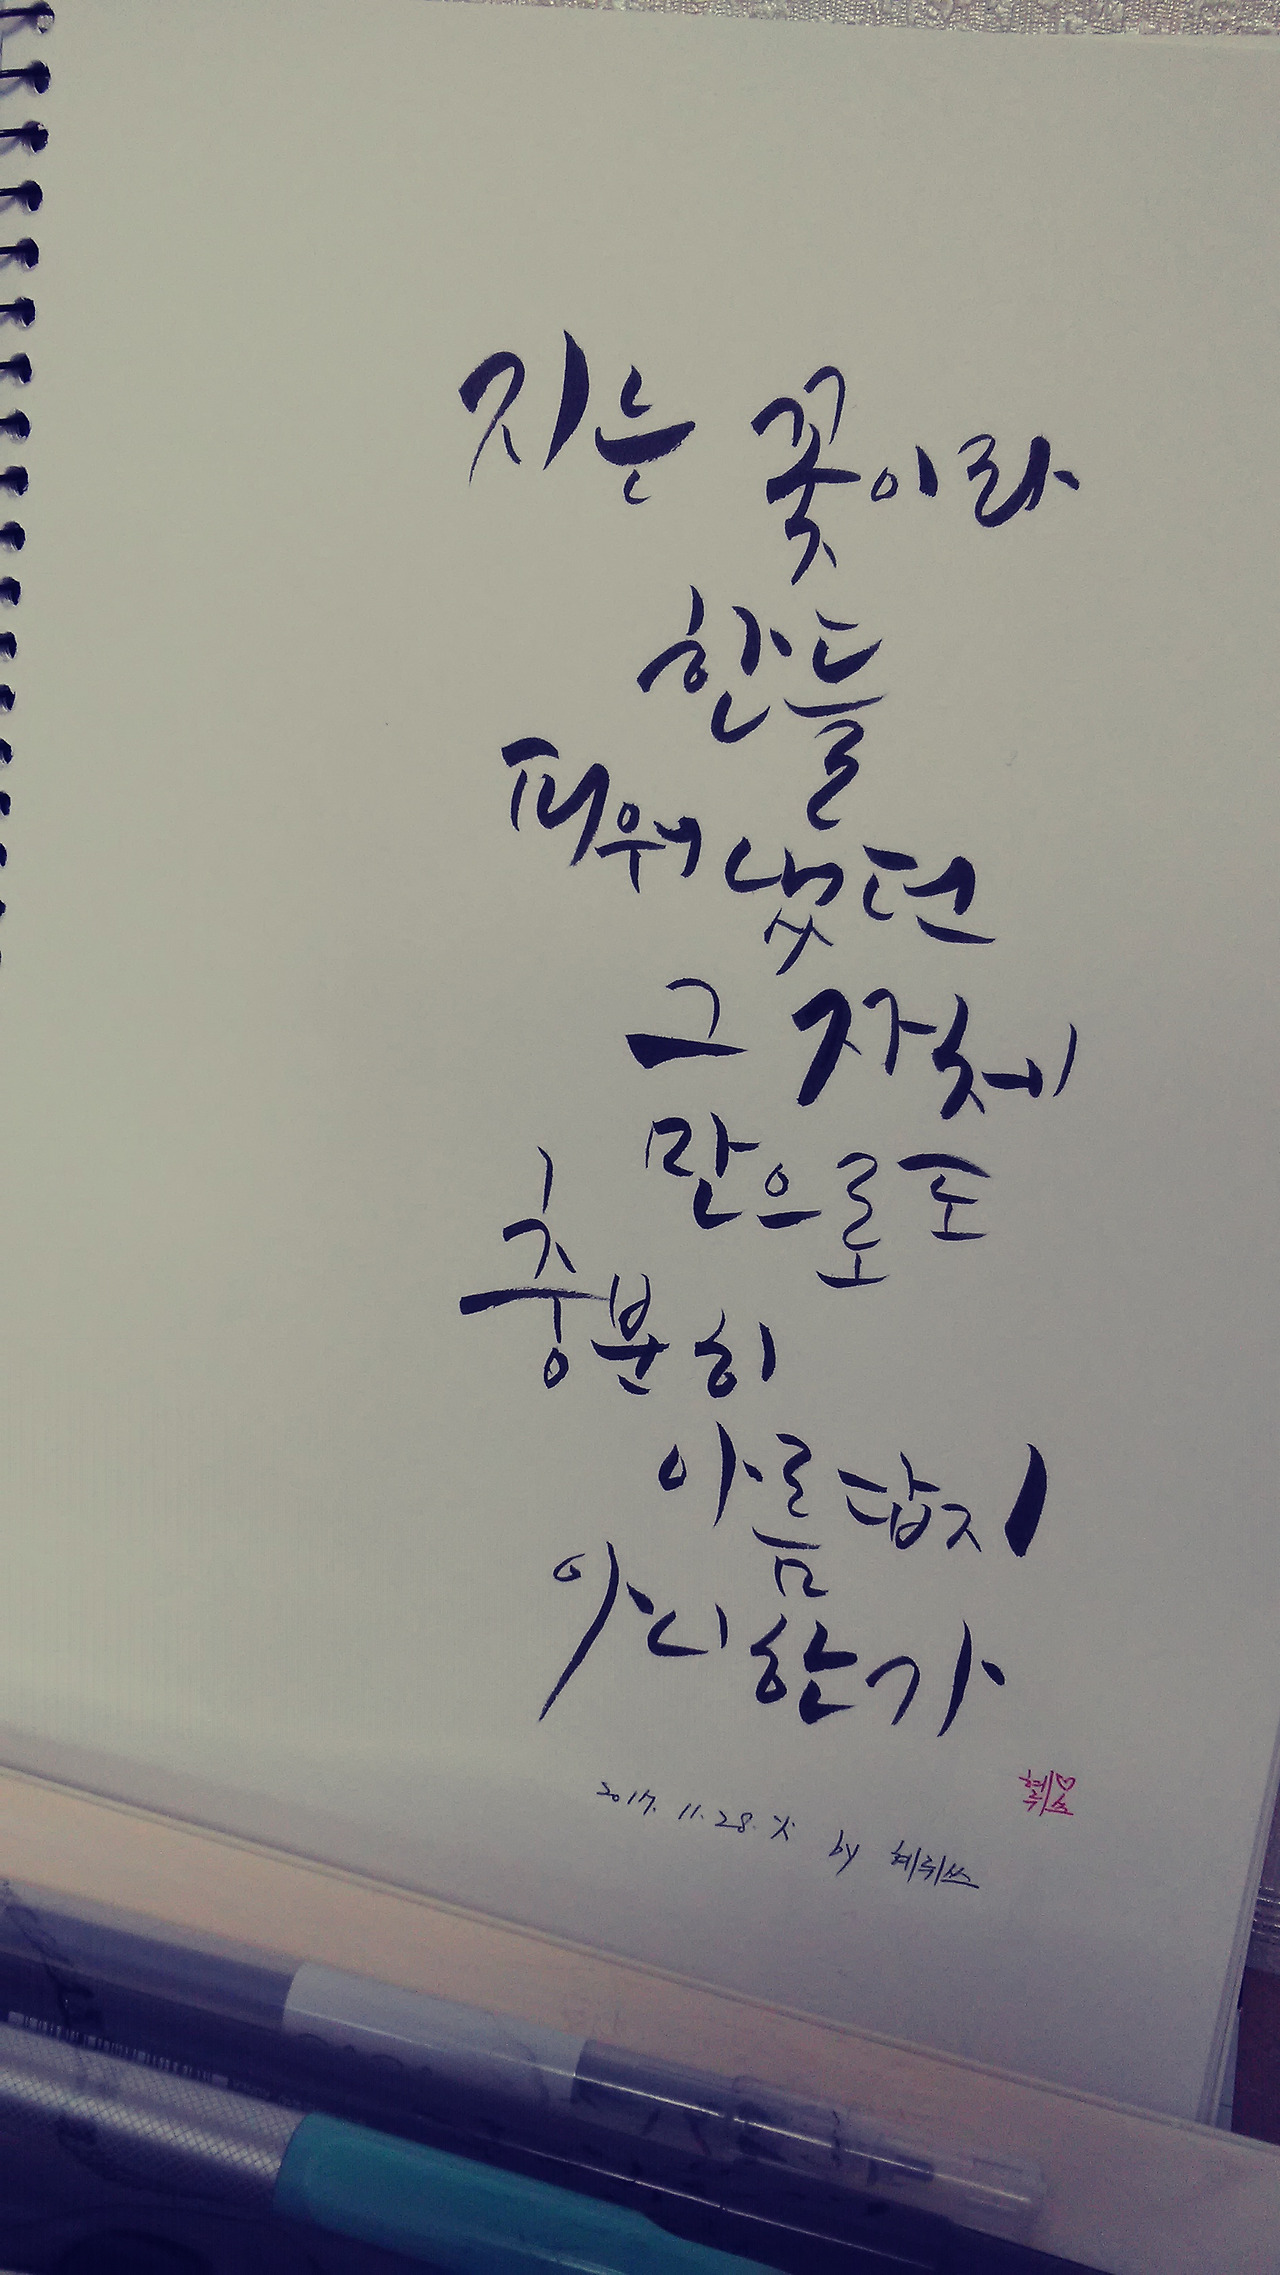 지는 꽃이라
한들
피워냈던
그 자체
만으로도
충분히
아름답지
아니한가
2017. 11. 28. 火 by 혜뤼쓰